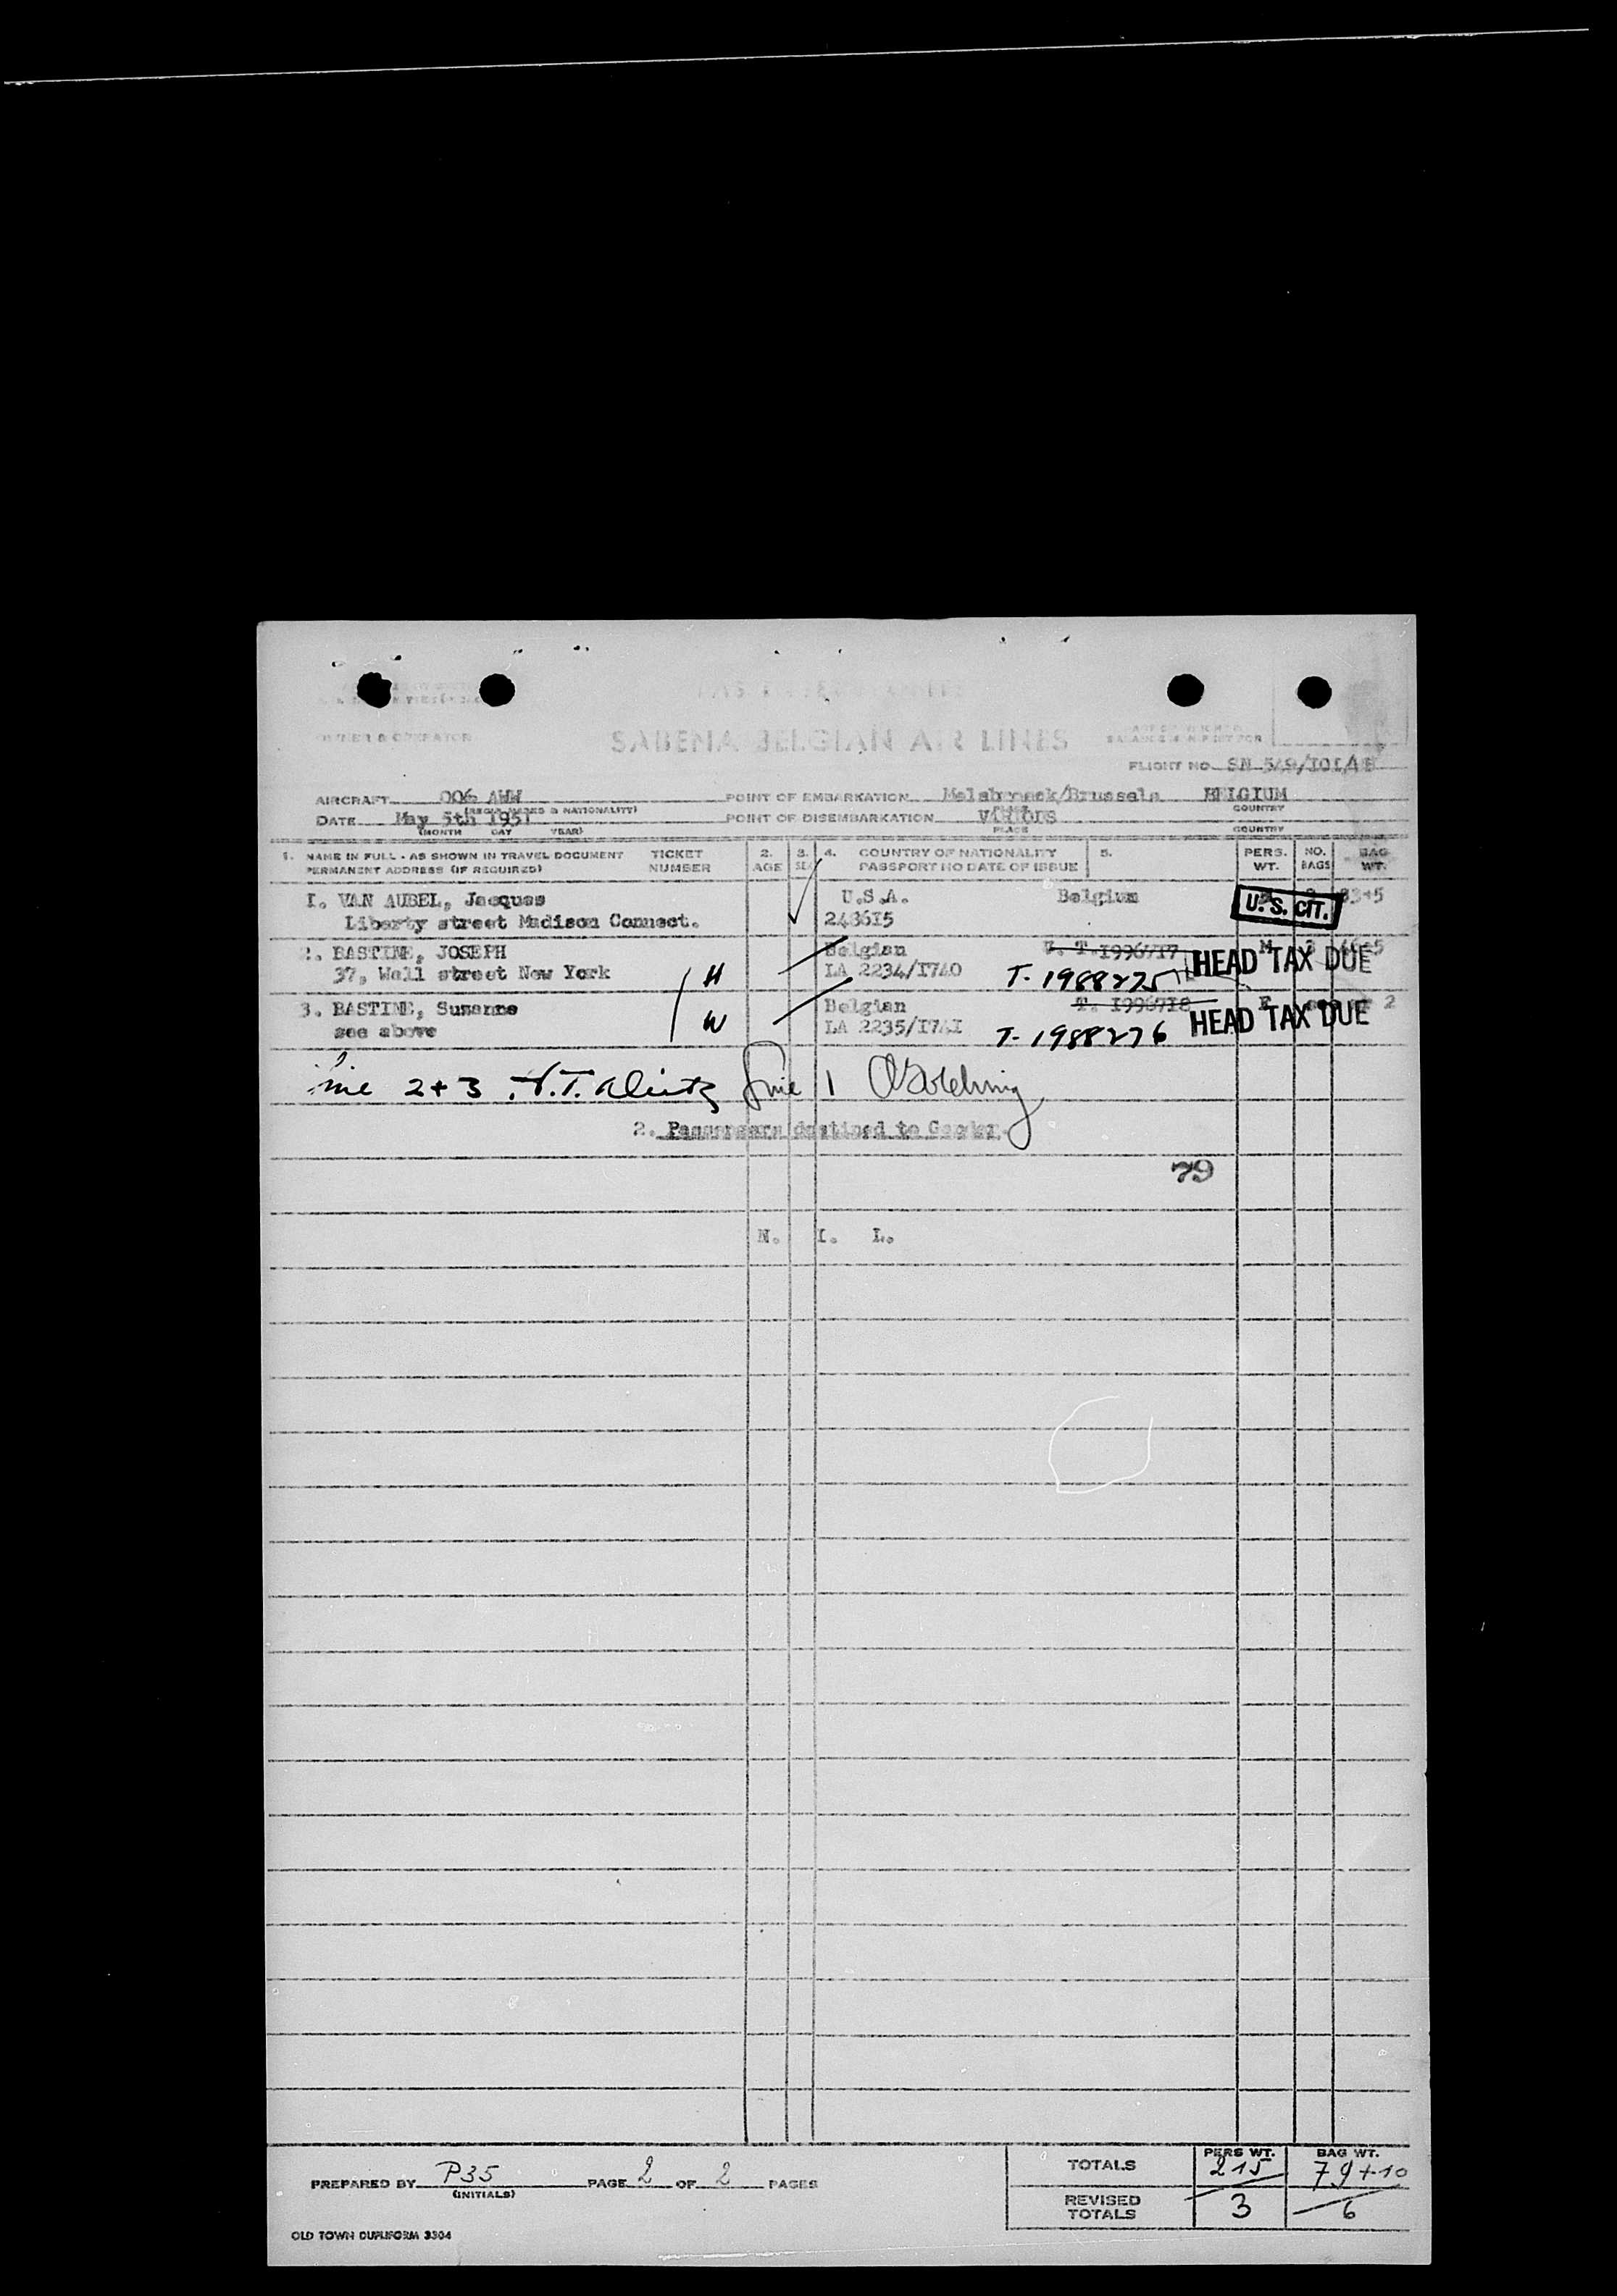 SABENA BELGIAN AIR LINES
OWNER & OPERATOR
FLIGHT NO. SN 549/101/
AIRCRAFT 006 AWW POINT OF EMBARKATION Melsbroeck/Brussels BELGIUM
(REGN. MARKS & NATIONALITY) COUNTRY
DATE May 5th 1951 POINT OF DISEMBARKATION VARIOUS
(MONTH DAY YEAR) PLACE COUNTRY
1. NAME IN FULL - AS SHOWN IN TRAVEL DOCUMENT TICKET 2. 3. 4. COUNTRY OF NATIONALITY 5. PERS. NO. BAG
PERMANENT ADDRESS (IF REQUIRED) NUMBER AGE SEX PASSPORT NO DATE OF ISSUE WT. BAGS WT.
I. VAN AUBEL, Jacques U.S.A. Belgium U.S. CIT. 33+5
Liberty street Madison Connect. 248615
2. BASTINE, JOSEPH Belgian T. 1996717 M HEAD TAX DUE
37, Wall street New York H LA 2234/I740 T-1988275
3. BASTINE, Suzanne Belgian T. 1996718 F 2
see above W LA 2235/I74I T-1988276 HEAD TAX DUE
line 2+3 Line 1
2. Passengers destined to Gander.
79
N. I. L.
TOTALS PERS WT. 215 BAG WT. 79+10
PREPARED BY P35 PAGE 2 OF 2 PAGES
(INITIALS)
REVISED TOTALS 3 6
OLD TOWN DUPLIFORM 3304